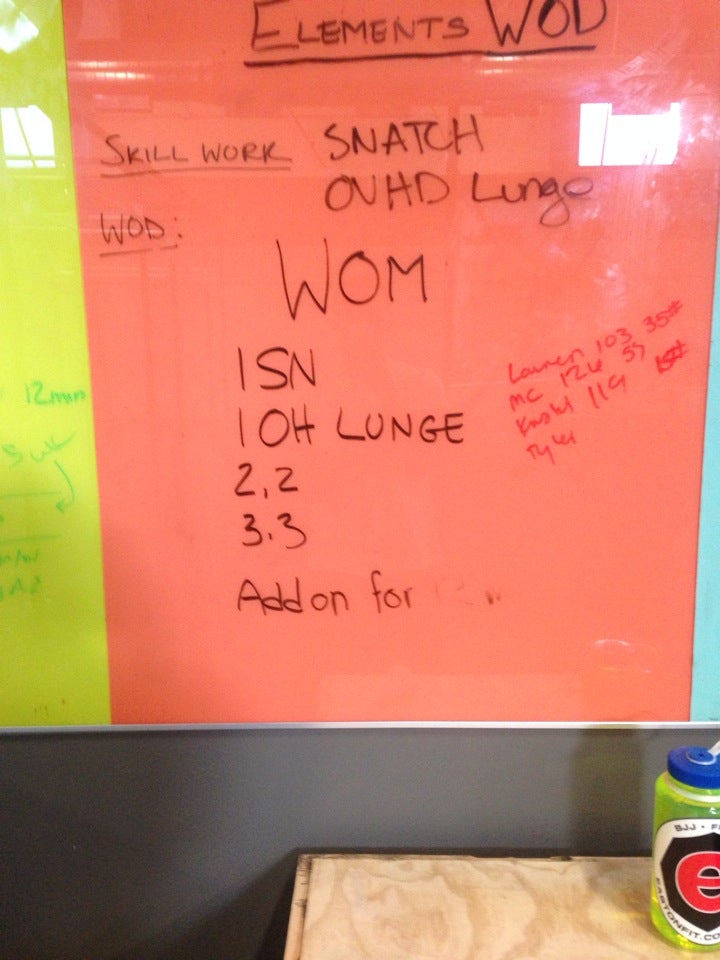 ELEMENTS WOD
SKILL WORK SNATCH
OVHD Lunge
WOD:
WOM
1 SN
1 OH LUNGE
2,2
3.3
Add on for
Lauren 103 35#
MC 126 55
119 15#
Tyler
12min
BJJ
e